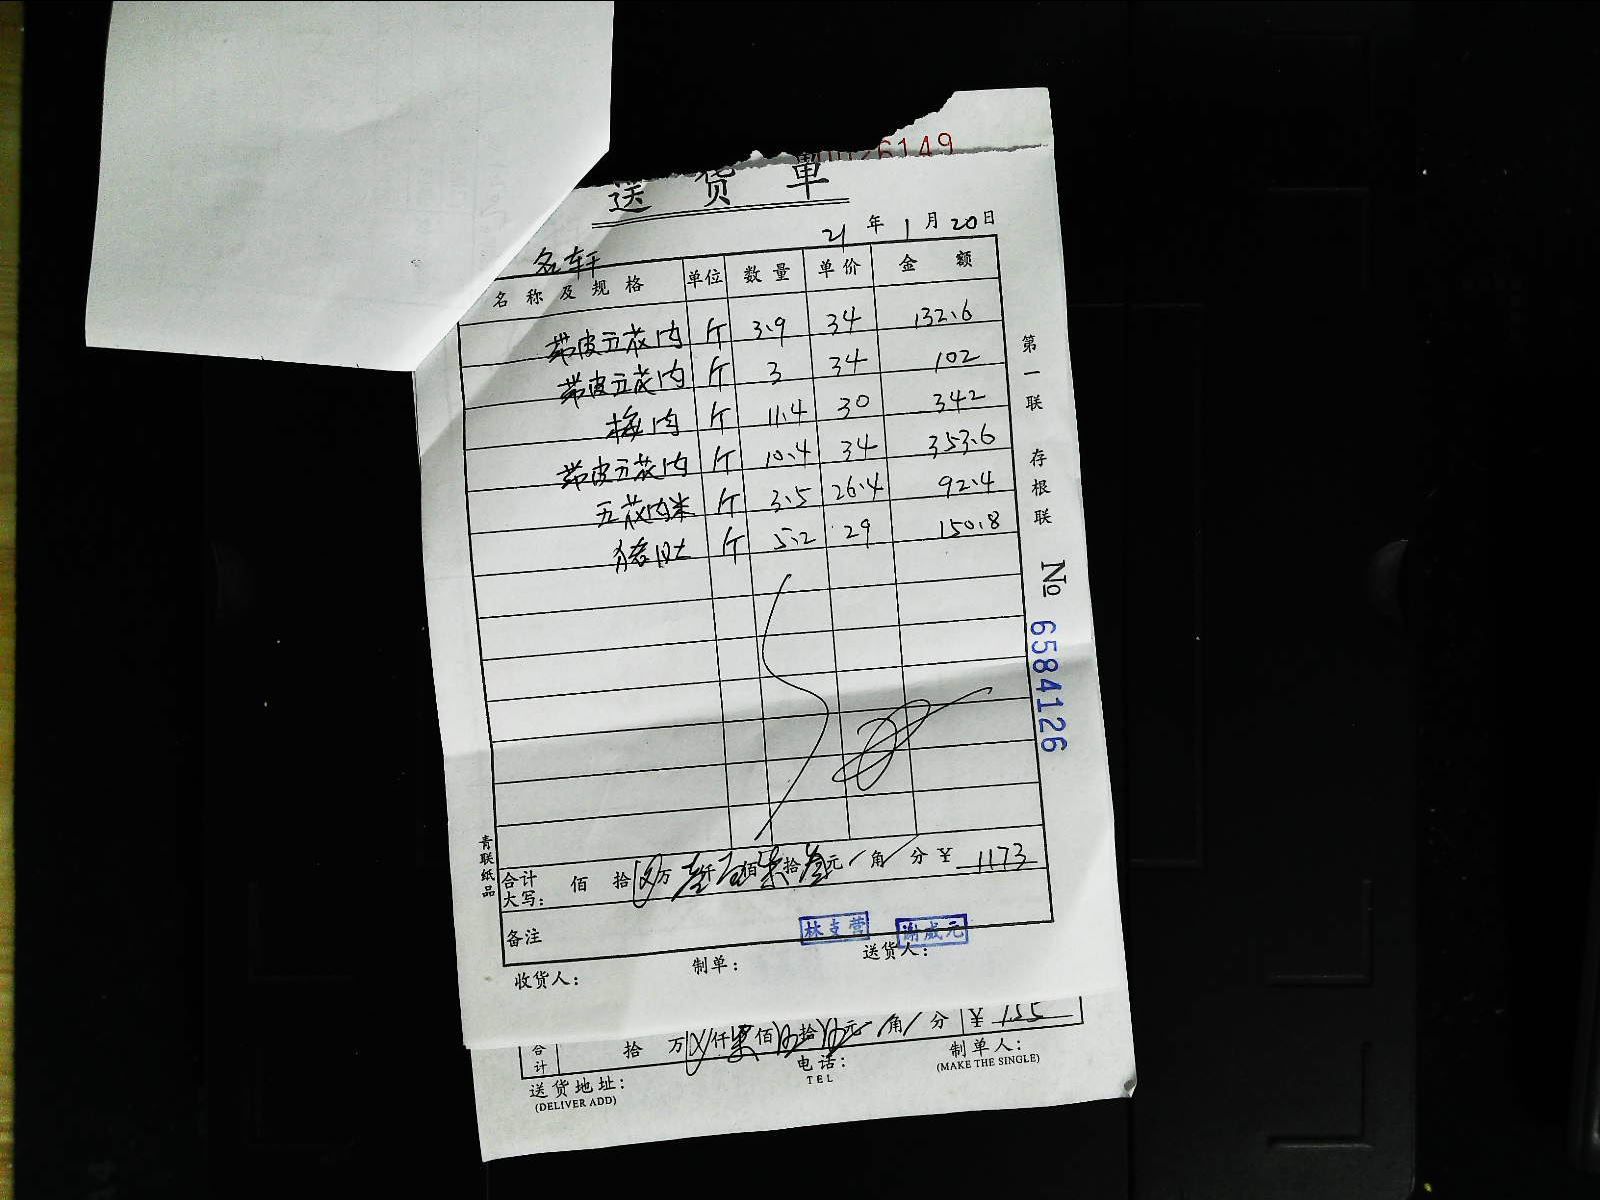 26149
送货单
21年1月20日
名轩
名称及规格 单位 数量 单价 金额
带皮五花肉 斤 3.9 34 132.6
带皮五花肉 斤 3 34 102
梅肉 斤 11.4 30 342
带皮五花肉 斤 10.4 34 353.6
五花肉米 斤 3.5 26.4 92.4
猪肚 斤 5.2 29 150.8
第一联 存根联
№ 6584126
青联纸品
合计大写: 佰 拾 万 壹仟 壹佰 柒拾 叁元 角 分 ¥ 1173
备注
林支营 谢威元
收货人: 制单: 送货人:
合计 拾 万 仟 柒佰 拾 元 角 分 ¥ 155
送货地址: 电话: 制单人:
(DELIVER ADD) TEL (MAKE THE SINGLE)